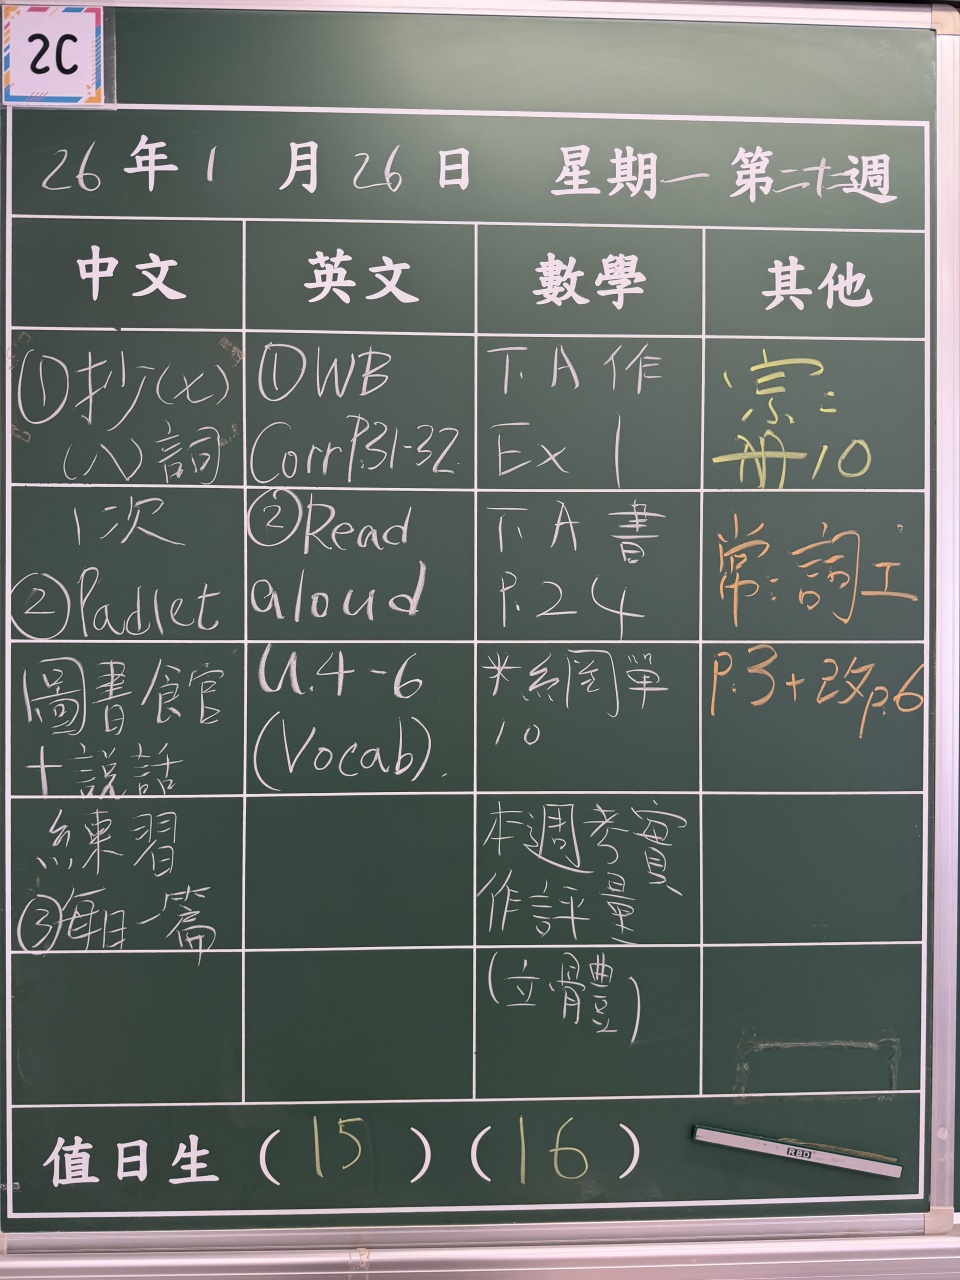 2C
26年1月26日 星期一 第二十二週
中文 英文 數學 其他
①抄(七)
(八)詞
1次
②Padlet
圖書館
+說話
練習
③每日一篇
①WB
Corr P.31-32
②Read
aloud
U.4-6
(Vocab).
下A作
Ex 1
下A書
P.24
*網單
10
本週考實
作評量
(立體)
宗:
冊10
常:詞工
P.3+改p.6
值日生(15)(16)
RBD